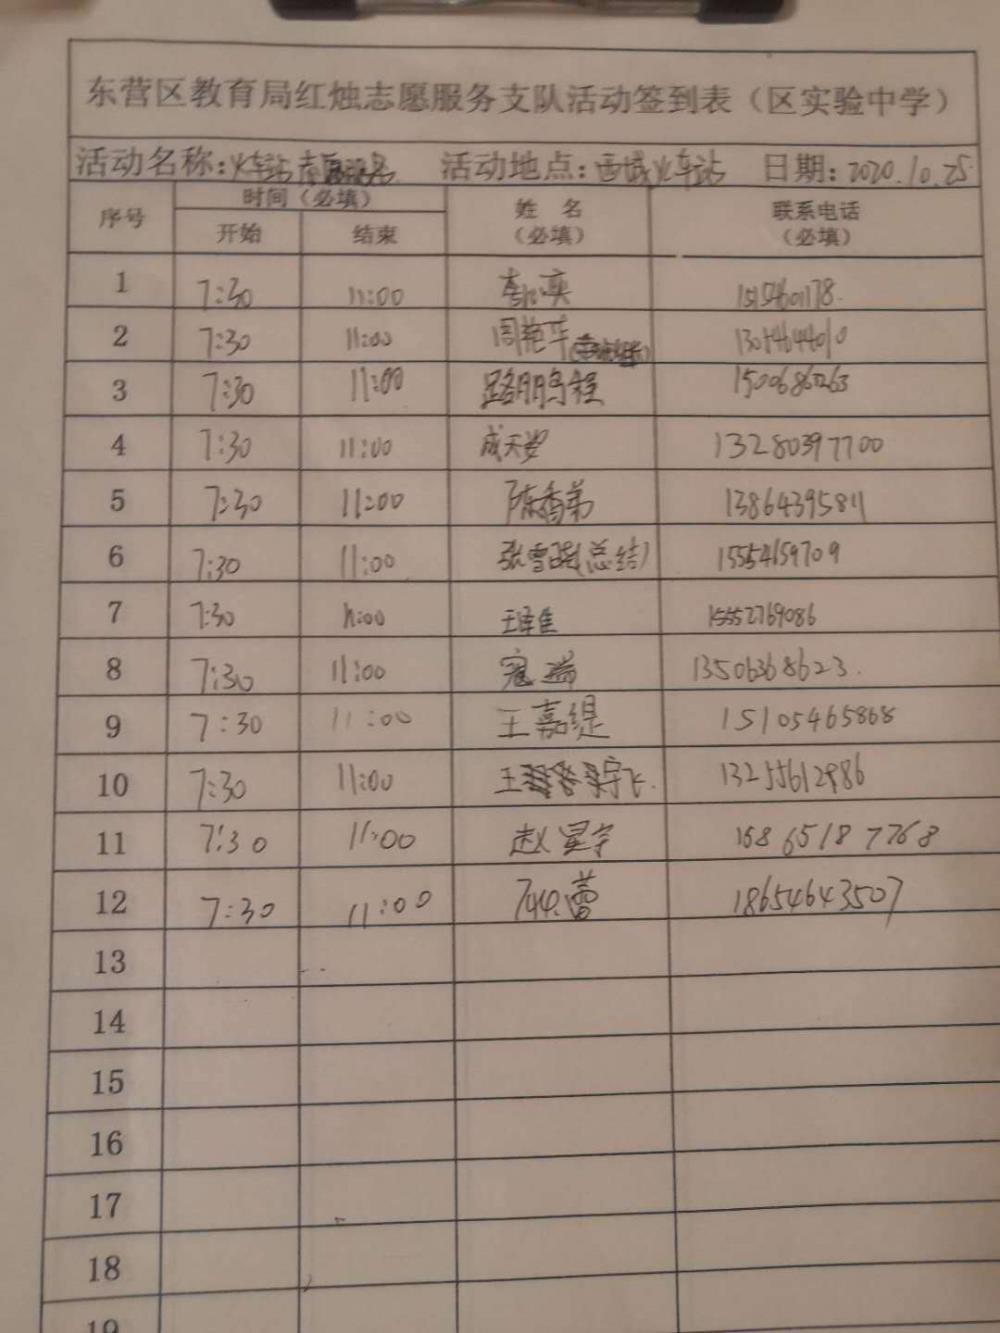 东营区教育局红烛志愿服务支队活动签到表（区实验中学）
活动名称：火车站志愿服务 活动地点：西城火车站 日期：2020.10.25
序号 时间（必填） 姓 名（必填） 联系电话（必填）
开始 结束
1 7:30 11:00
2 7:30 11:00 周艳华
3 7:30 11:00 路鹏程
4 7:30 11:00 成天姿 13280397700
5 7:30 11:00 陈香弟 13864395811
6 7:30 11:00 张雪(总结) 15554659709
7 7:30 11:00 15552769086
8 7:30 11:00 寇瑞 13506368623.
9 7:30 11:00 王嘉缇 15105465868
10 7:30 11:00 王宇飞. 13255612986
11 7:30 11:00 赵星宇 15865187768
12 7:30 11:00 蕾 18654643507
13
14
15
16
17
18
19